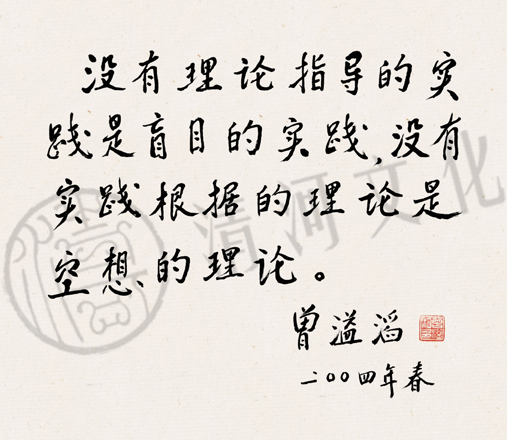 没有理论指导的实
践是盲目的实践,没有
实践根据的理论是
空想的理论。
曾溢滔
二〇〇四年春
清河文化